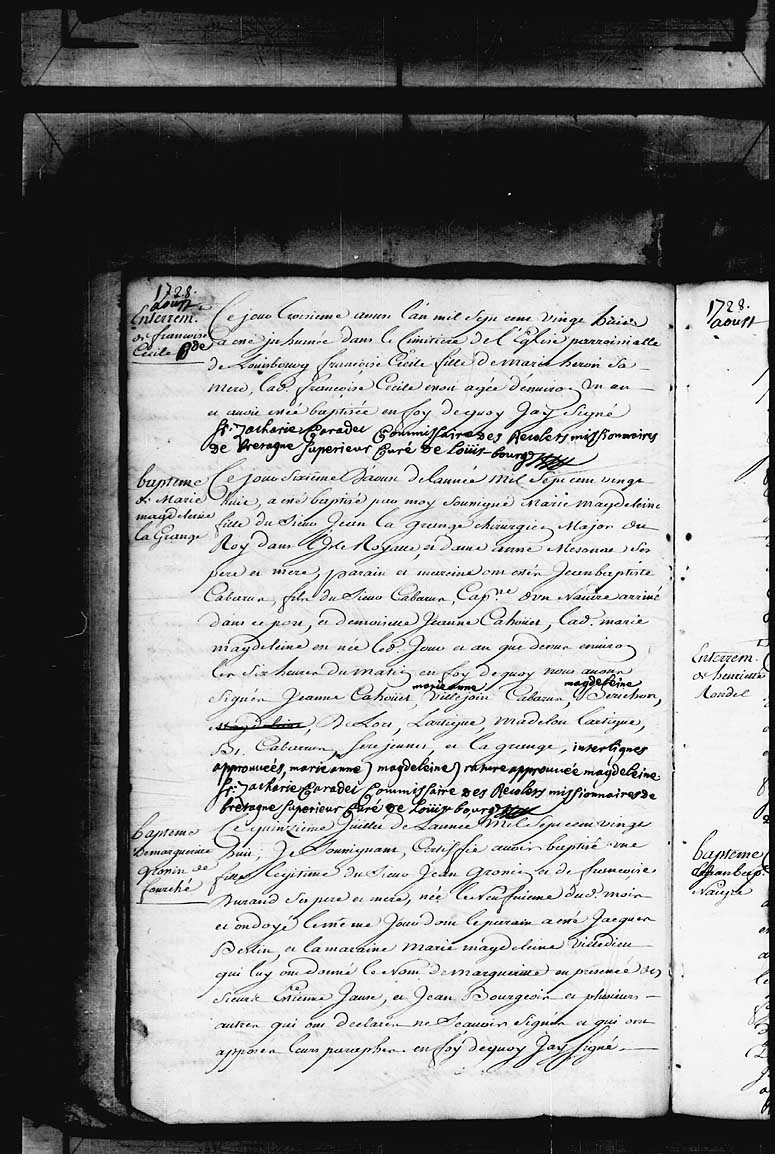 1728.
aoust
Enterrem.
de francoise
Cecile
Ce jour troisieme aoust l'an mil Sept cent vingt huit
a eté inhumée dans le Cimitiere de l'Eglise parroissialle
de Louisbourg françoise Cecile fille de Marie heron sa
mere, lad. françoise Cecile agée d'environ un an
et avoir etée baptisée en foy de quoy Jay Signé
fr: Zacharie Caradec Commissaire des Recolets missionnaires
de bretagne superieur Curé de Loüisbourg
bapteme
de Marie
magdeleine
la Grange
Ce jour Sixieme d'aoust de lannée Mil Sept cent vingt
huit, a eté baptisé par moy Sousigné Marie Magdeleine
fille du Sieur Jean la Grange chirurgien Major du
Roy dans l'Isle Royalle et dame anne Ses
pere et mere, parain et maraine ont estés Jean baptiste
Cabarus, fils du Sieur Cabarus, Capne d'un Navire arrivé
dans ce port, et demoiselle Jeanne Cahoüet, lad. marie
magdeleine en née led. Jour et an que dessus environ
les six heures du matin en foy de quoy nous avons
marianne magdeleine
Signés Jeanne Cahoüet, Villejoin Cabarus, Berrichon,
De Lort, Lartigue, Madelon Lartigue,
Bt. Cabarrus, fere jeunes, et la grange, interlignes
approuvées, marianne) magdeleine) rature approuvée magdeleine
fr: Zacharie Caradec Commissaire des Recolets missionnaires de
bretagne superieur Curé de Loüisbourg
bapteme
de margueritte
gronin de
fourché
Ce quinzieme Juillet de Lannée Mil Sept cent vingt
huit, Je Sousignant, Certiffie avoir baptisé une
fille legitime du Sieur Jean Gronin et de francoise
Durand Ses pere et mere, née le Neufvieme dud. mois
et ondoyé le même Jour dont le parain a eté Jacques
et la maraine marie magdeleine Villedieu
qui luy ont donné le Nom de margueritte en presence des
Sieurs Etienne et Jean Bourgeois et plusieurs
autres qui ont declarés ne Scavoir Signer et qui ont
apposer leurs paraphes en foy de quoy Jay Signé
1728.
aoust
Enterrem.
de henriette
Rondel
bapteme